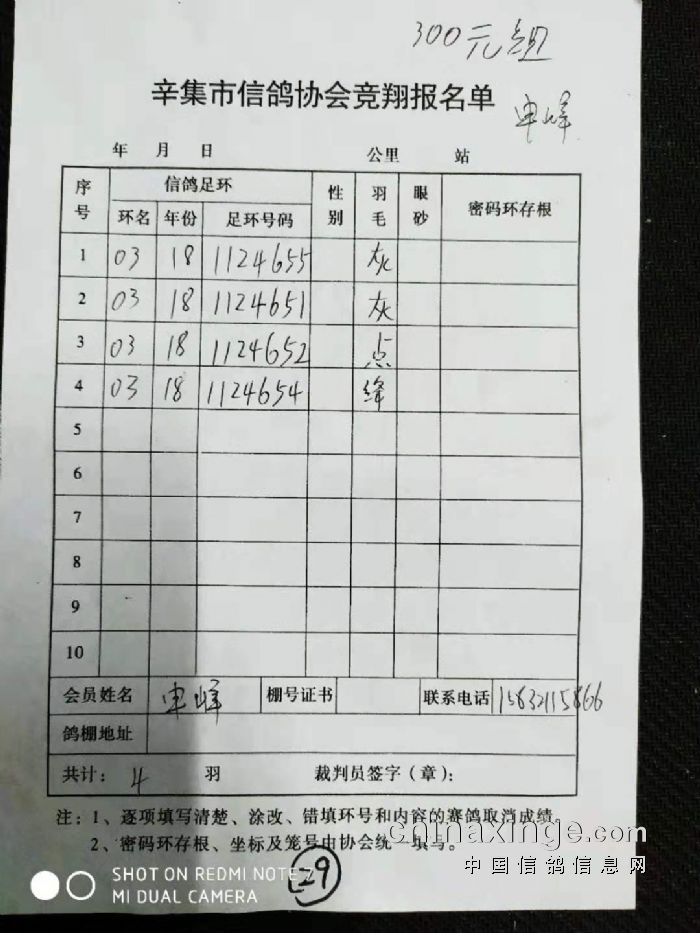 300元组
辛集市信鸽协会竞翔报名单
申峰
年 月 日 公里 站
序号 信鸽足环 性别 羽毛 眼砂 密码环存根
环名 年份 足环号码
1 03 18 1124655 灰
2 03 18 1124651 灰
3 03 18 1124652 点
4 03 18 1124654 绛
5
6
7
8
9
10
会员姓名 申峰 棚号证书 联系电话 15832115866
鸽棚地址
共计: 4 羽 裁判员签字(章):
注:1、逐项填写清楚、涂改、错填环号和内容的赛鸽取消成绩。
2、密码环存根、坐标及笼号由协会统一填写。
chinaxinge.com
中国信鸽信息网
29
SHOT ON REDMI NOTE 7
MI DUAL CAMERA